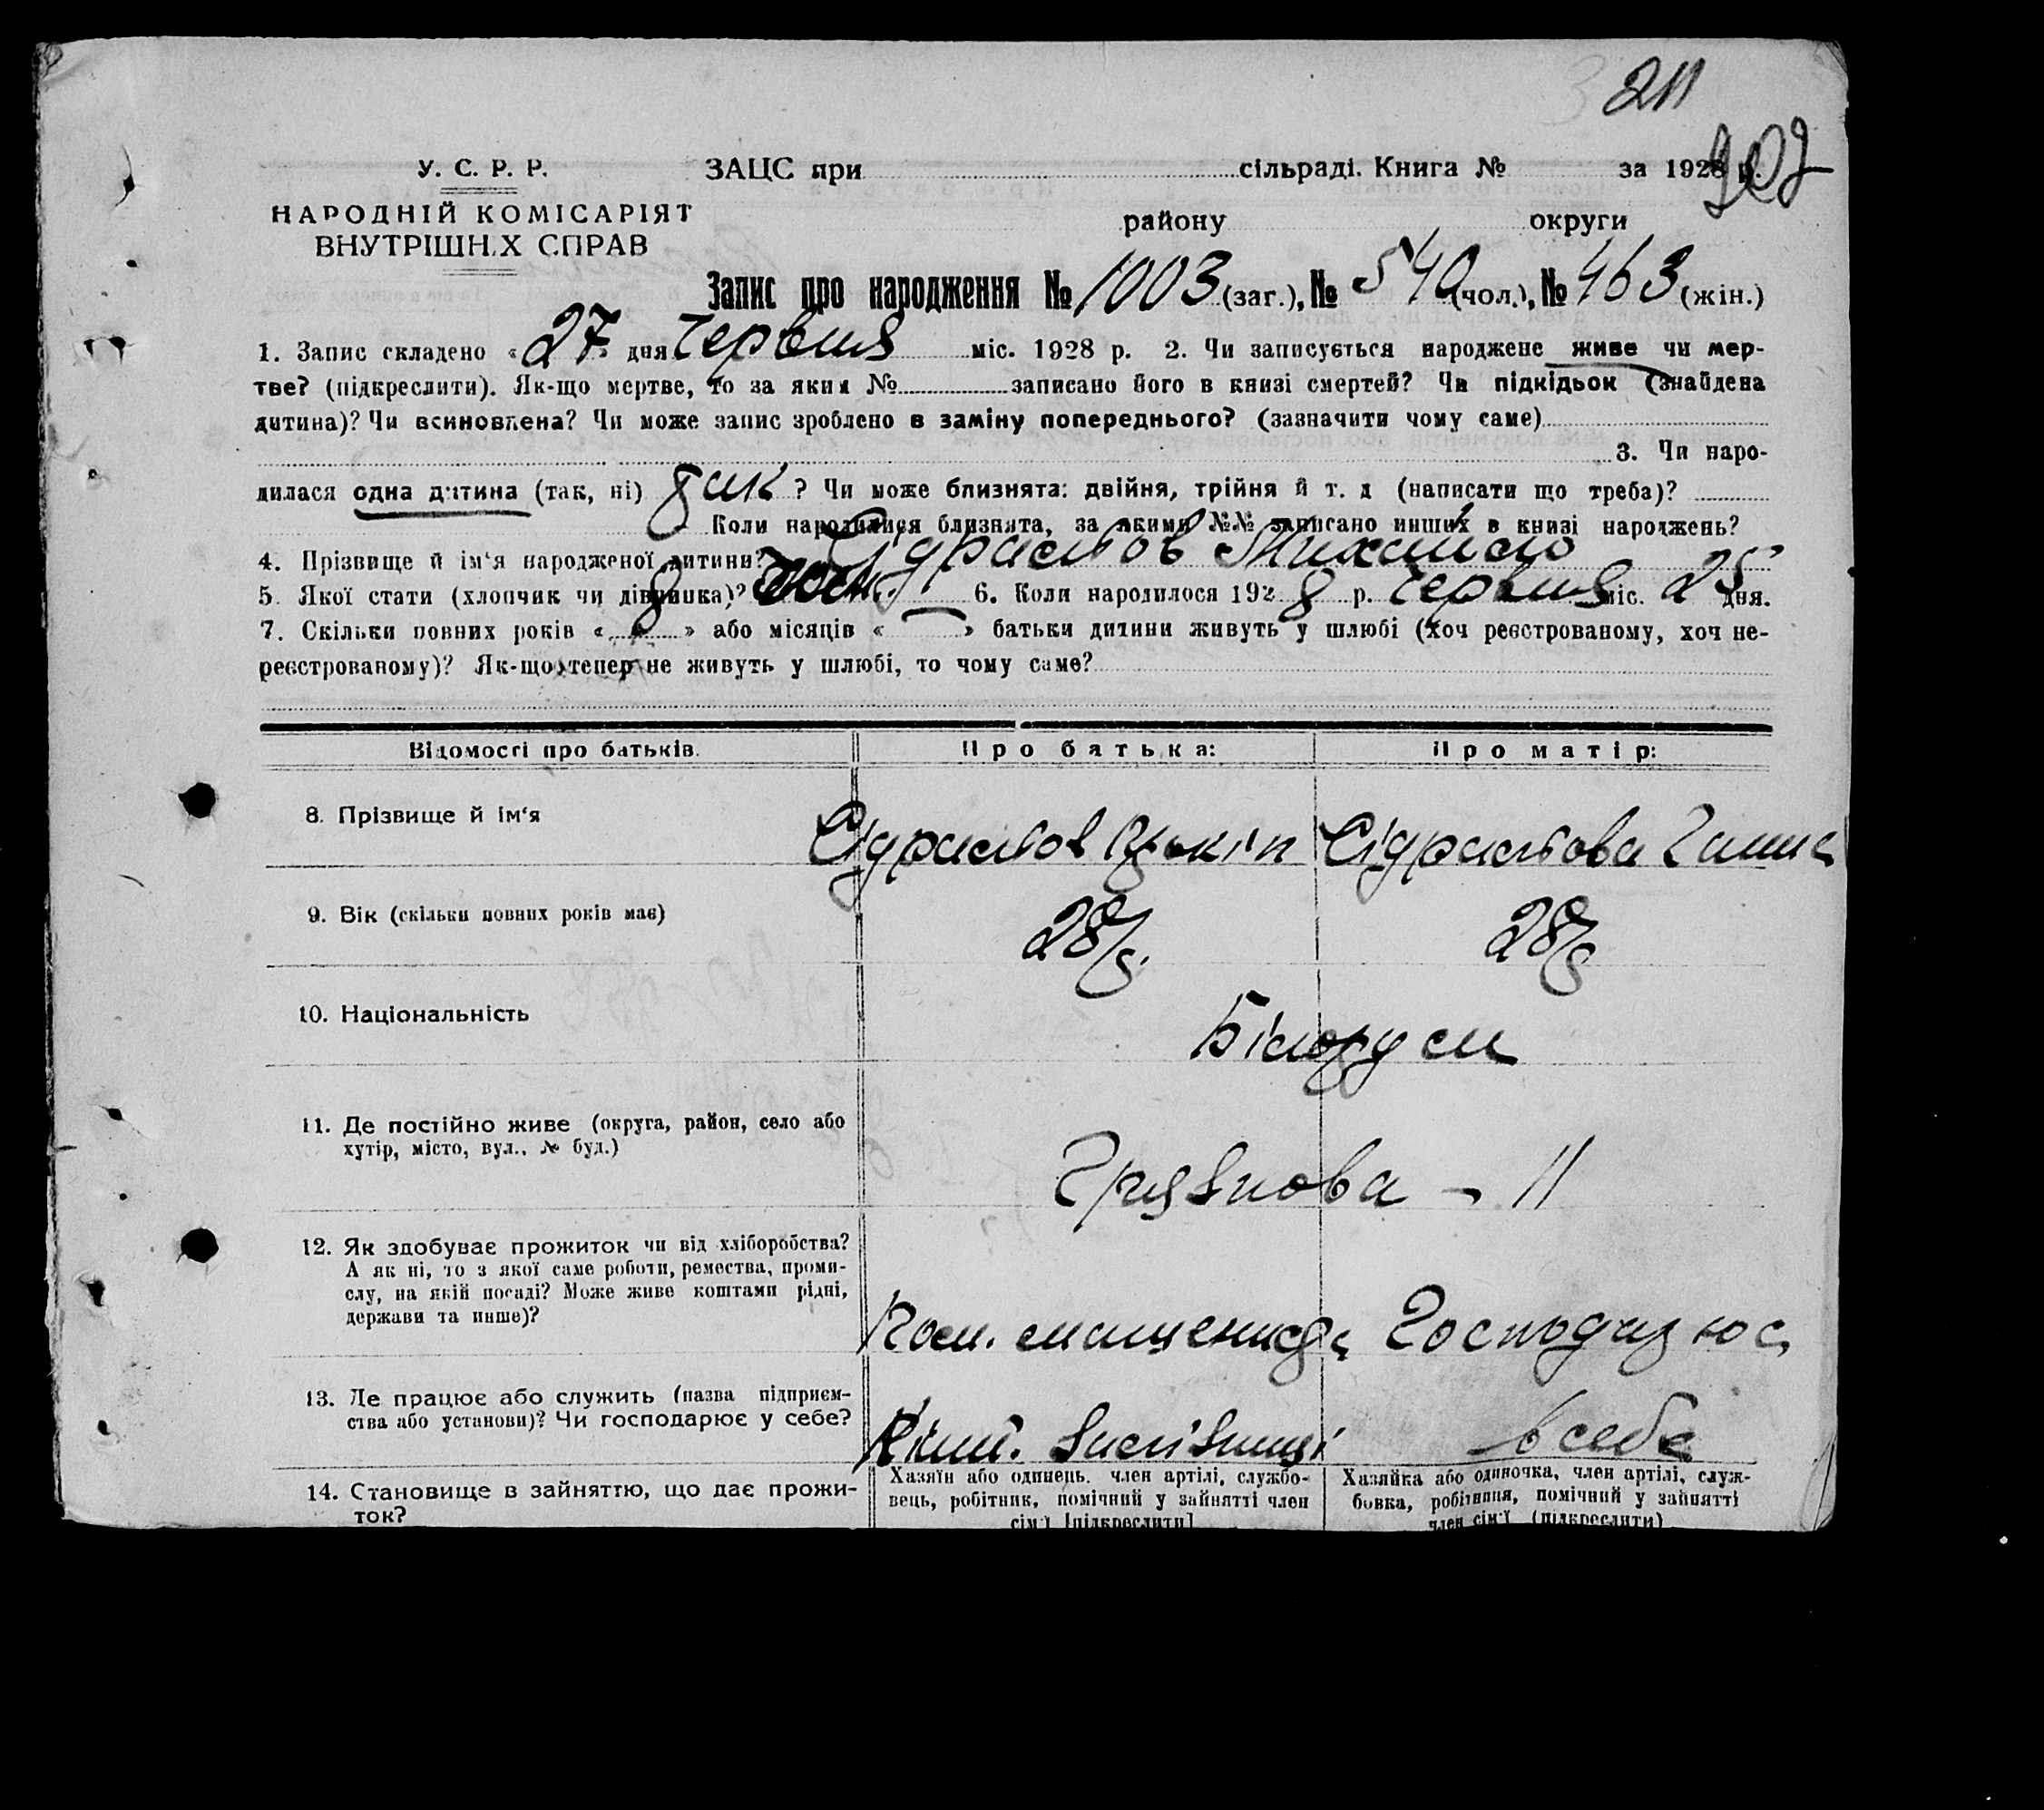 211
207
У. С. Р. Р. ЗАЦС при сільраді. Книга № за 1928 р.
НАРОДНІЙ КОМІСАРІЯТ
ВНУТРІШНІХ СПРАВ
району округи
Запис про народження № 1003 (заг.), № 540 (чол.), № 463 (жін.)
1. Запис складено « 27 » дня Червня міс. 1928 р. 2. Чи записується народжене живе чи мер-
тве? (підкреслити). Як-що мертве, то за яким № записано його в книзі смертей? Чи підкідьок (знайдена
дитина)? Чи всиновлена? Чи може запис зроблено в заміну попереднього? (зазначити чому саме)
3. Чи наро-
дилася одна дитина (так, ні) так ? Чи може близнята: двійня, трійня й т. д (написати що треба)?
Коли народилися близнята, за якими №№ записано инших в книзі народжень?
4. Прізвище й ім'я народженої дитини? Михайло
5. Якої стати (хлопчик чи дівчинка)? 6. Коли народилося 1928 р. Червня міс. 25 дня.
7. Скільки повних років « 8 » або місяців « — » батьки дитини живуть у шлюбі (хоч реєстрованому, хоч не-
реєстрованому)? Як-що тепер не живуть у шлюбі, то чому саме?
Відомості про батьків. Про батька: Про матір:
8. Прізвище й ім'я Ганна
9. Вік (скільки повних років має) 28 28
10. Національність Білоруси
11. Де постійно живе (округа, район, село або
хутір, місто, вул., № буд.)
Грязнова - 11
12. Як здобуває прожиток чи від хліборобства?
А як ні, то з якої саме роботи, ремества, проми-
слу, на якій посаді? Може живе коштами рідні,
держави та инше)?
Господарює
13. Де працює або служить (назва підприєм-
ства або установи)? Чи господарює у себе?
в себе
14. Становище в зайняттю, що дає прожи-
ток?
Хазяїн або одинець, член артілі, службо-
вець, робітник, помічний у зайнятті член
сім'ї [підкреслити]
Хазяйка або одиночка, член артілі, служ-
бовка, робітниця, помічний у зайнятті
член сім'ї (підкреслити)